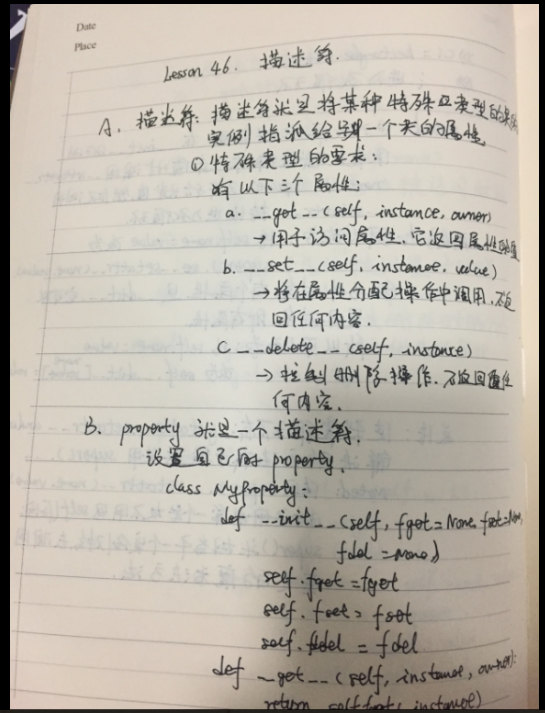 Date
Place
Lesson 46. 描述符.
A. 描述符: 描述符就是将某种特殊类型的类的
实例指派给另一个类的属性
① 特殊类型的要求:
有以下三个属性:
a. __get__(self, instance, owner)
→用于访问属性,它返回属性的值
b. __set__(self, instance, value)
→将在属性分配操作中调用,不返
回任何内容.
c __delete__(self, instance)
→控制删除操作,不返回任
何内容.
B. property 就是一个描述符.
设置自己的property.
class MyProperty:
def __init__(self, fget=None, fset=None,
fdel=None)
self.fget=fget
self.fset=fset
self.fdel = fdel
def __get__(self, instance, owner):
return self.fget(instance)